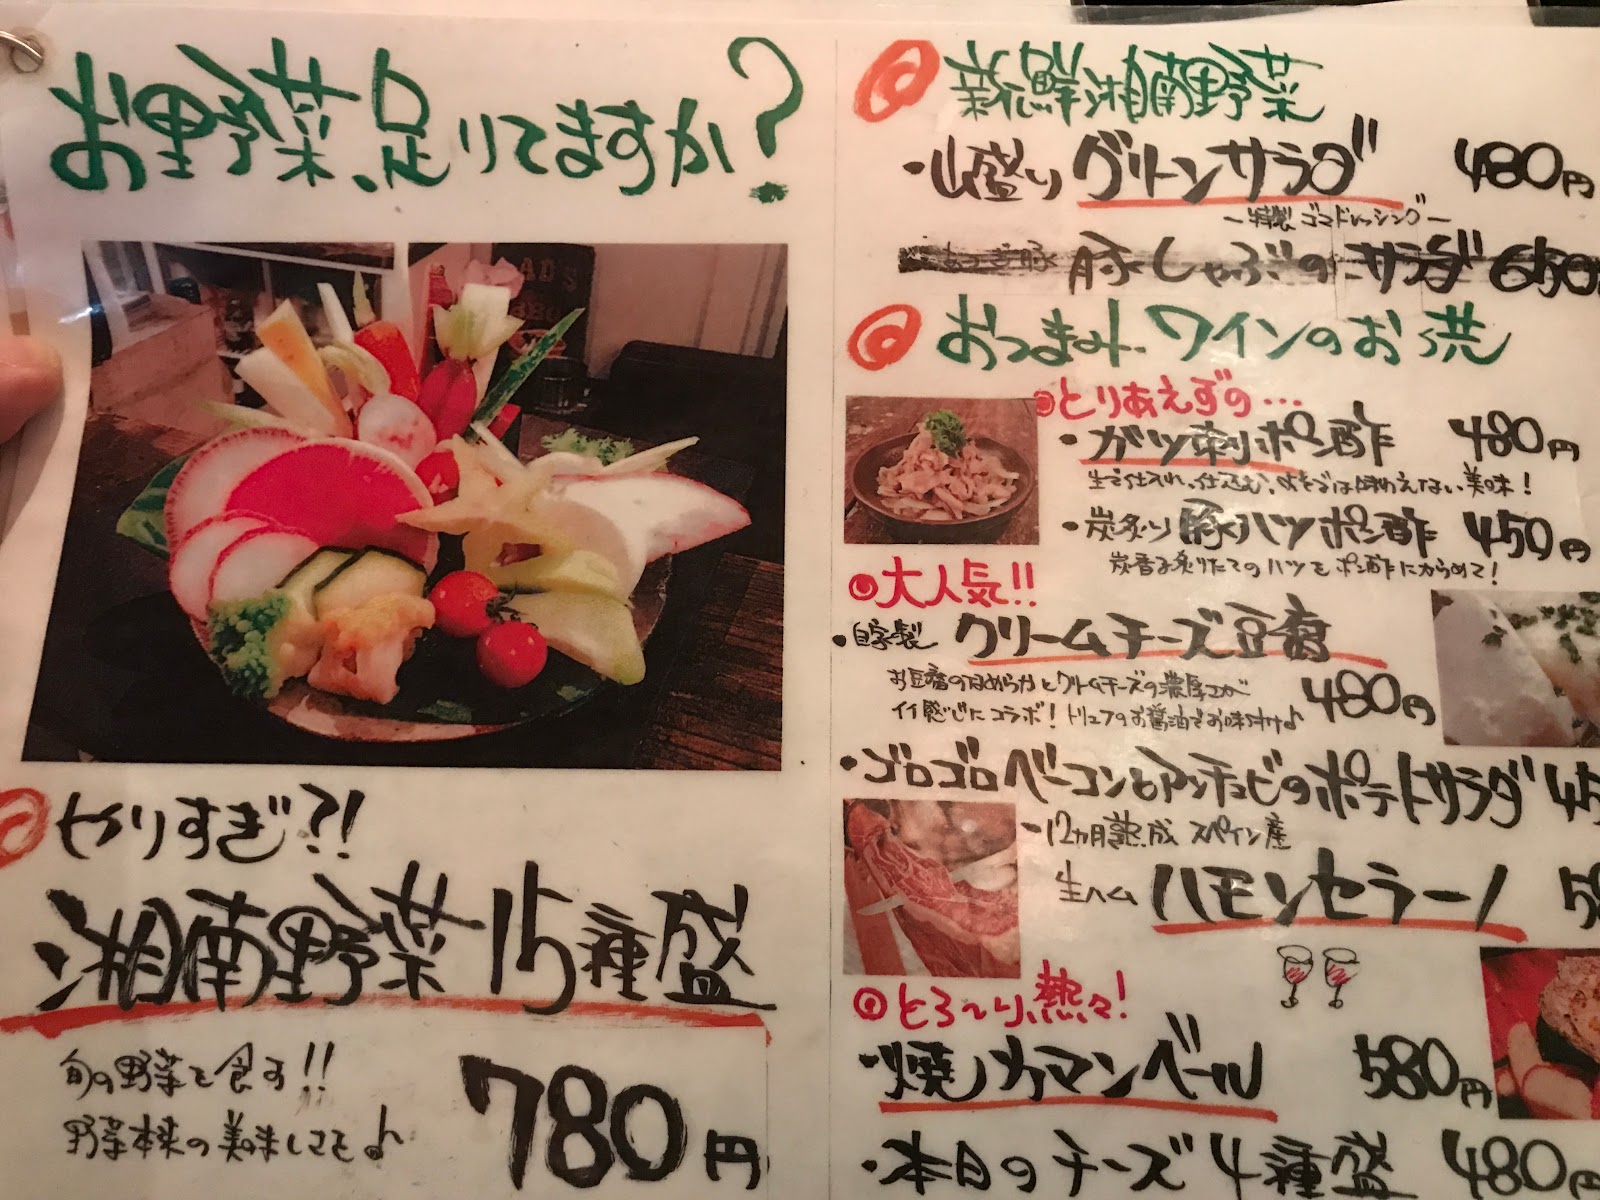 お野菜、足りてますか?
やりすぎ?!
湘南野菜15種盛
旬の野菜を食す!!
野菜本来の美味しさを♪
780円
新鮮湘南野菜
・山盛り グリーンサラダ 480円
―特製 ゴマドレッシング―
豚しゃぶのサラダ 650
おつまみ、ワインのお供
とりあえずの…
・ガツ刺ポン酢 480円
生で仕入れ、仕込む、よそでは味わえない美味!
・炭炙り 豚ハツポン酢 450円
炭香る炙りたてのハツをポン酢にからめて!
大人気!!
・自家製 クリームチーズ豆腐
お豆腐のなめらかとクリームチーズの濃厚コクが
イイ感じにコラボ!トリュフのお醤油でお味付け♪
480円
・ゴロゴロベーコンとアンチョビのポテトサラダ 45
―12ヵ月熟成 スペイン産
生ハム ハモンセラーノ
とろ〜り、熱々!
・焼カマンベール 580円
・本日のチーズ4種盛 480円